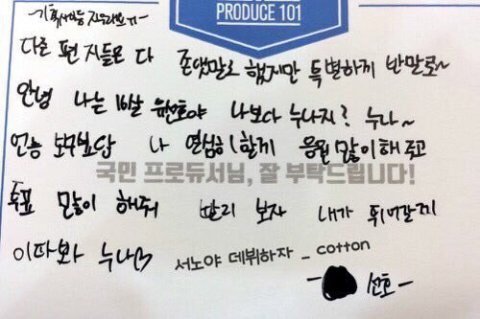 PRODUCE 101
다른 편지들은 다 존댓말로 했지만 특별하게 반말로~
안녕 나는 16살 유선호야 나보다 누나지? 누나~
언능 보구싶담 나 열심히 할게 응원 많이 해주고
국민 프로듀서님, 잘 부탁드립니다!
투표 많이 해줘 빨리 보자 내가 뛰어갈게
이따봐 누나♡ 서노야 데뷔하자 _ cotton
- 선호 -